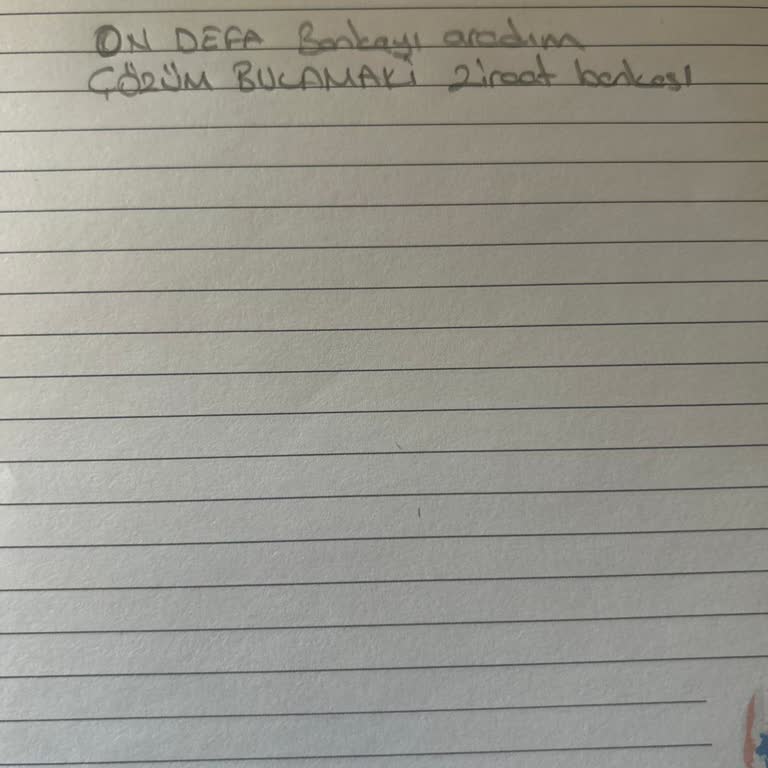 ON DEFA Bankayı aradım
ÇÖZÜM BULAMAKİ Ziraat bankası